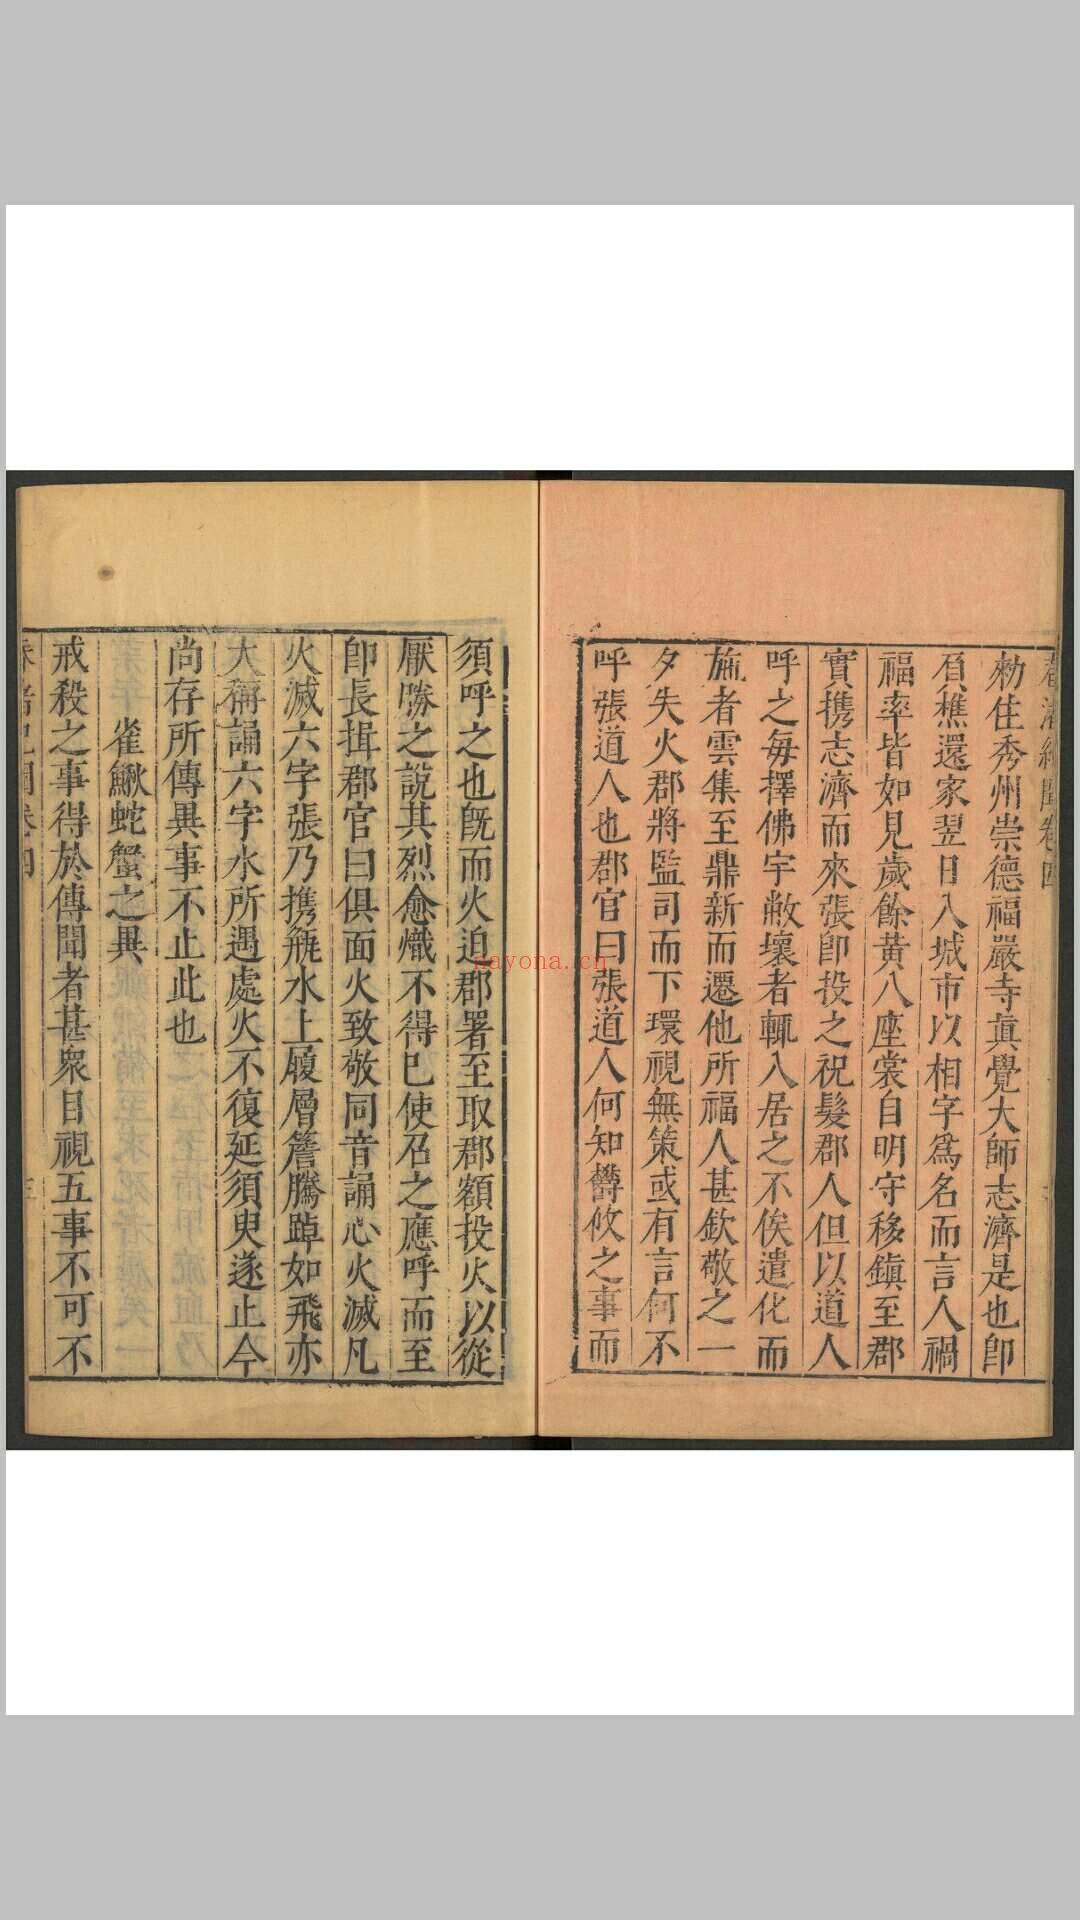 春渚紀聞卷四
勑住秀州崇德福嚴寺眞覺大師志濟是也卽
負樵還家翌日入城市以相字爲名而言人禍
福率皆如見歲餘黃八座裳自明守移鎮至郡
實攜志濟而來張卽投之祝髮郡人但以道人
呼之每擇佛宇敝壞者輒入居之不俟遣化而
施者雲集至鼎新而遷他所福人甚欽敬之一
夕失火郡將監司而下環視無策或有言何不
呼張道人也郡官曰張道人何知欝攸之事而
須呼之也旣而火迫郡署至取郡額投火以從
厭勝之說其烈愈熾不得已使召之應呼而至
卽長揖郡官曰俱面火致敬同音誦心火滅凡
火滅六字張乃携甁水上履層簷騰踔如飛亦
大稱誦六字水所遇處火不復延須臾遂止今
尚存所傳異事不止此也
雀鰍蛇蟹之異
戒殺之事得於傳聞者甚衆目視五事不可不
春渚紀聞卷四
三
nayona.cn